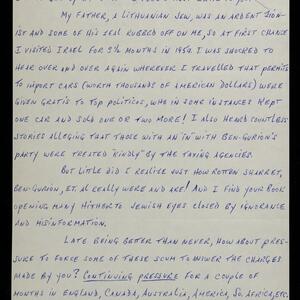 My father, a Lithuanian Jew, was an ardent Zion-
ist and some of his zeal rubbed off on me, so at first chance
I visited Israel for 9½ months in 1954. I was shocked to
hear over and over again wherever I travelled that permits
to import cars (worth thousands of American dollars) were
given gratis to top politicos, who in some instances kept
one car and sold one or two more! I also heard countless
stories alleging that those with an "in" with Ben-Gurion's
party were treated "kindly" by the taxing agencies.
But little did I realize just how rotten Sharret,
Ben-Gurion, et. al really were and are! And I find your book
opening many hitherto Jewish eyes closed by ignorance
and misinformation.
Late being better than never, how about pres-
sure to force some of these scum to answer the charges
made by you? Continuing pressure for a couple of
months in England, Canada, Australia, America, So. Africa, etc.